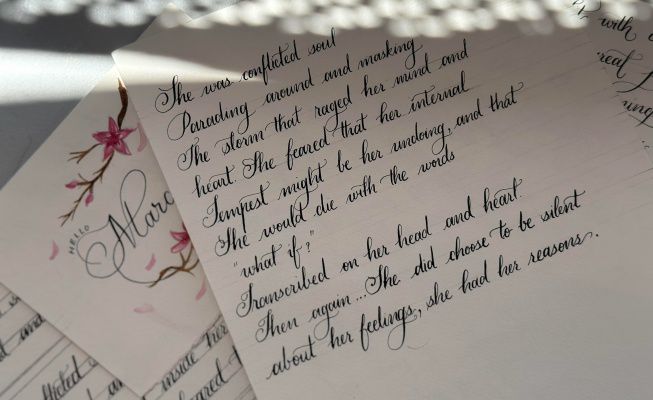 She was conflicted soul
Parading around and masking
The storm that raged her mind and
heart. She feared that her internal
Tempest might be her undoing, and that
She would die with the words
"what if?"
Transcribed on her head and heart.
Then again... She did choose to be silent
about her feelings, she had her reasons.
HELLO
Marc
with
real
inside her